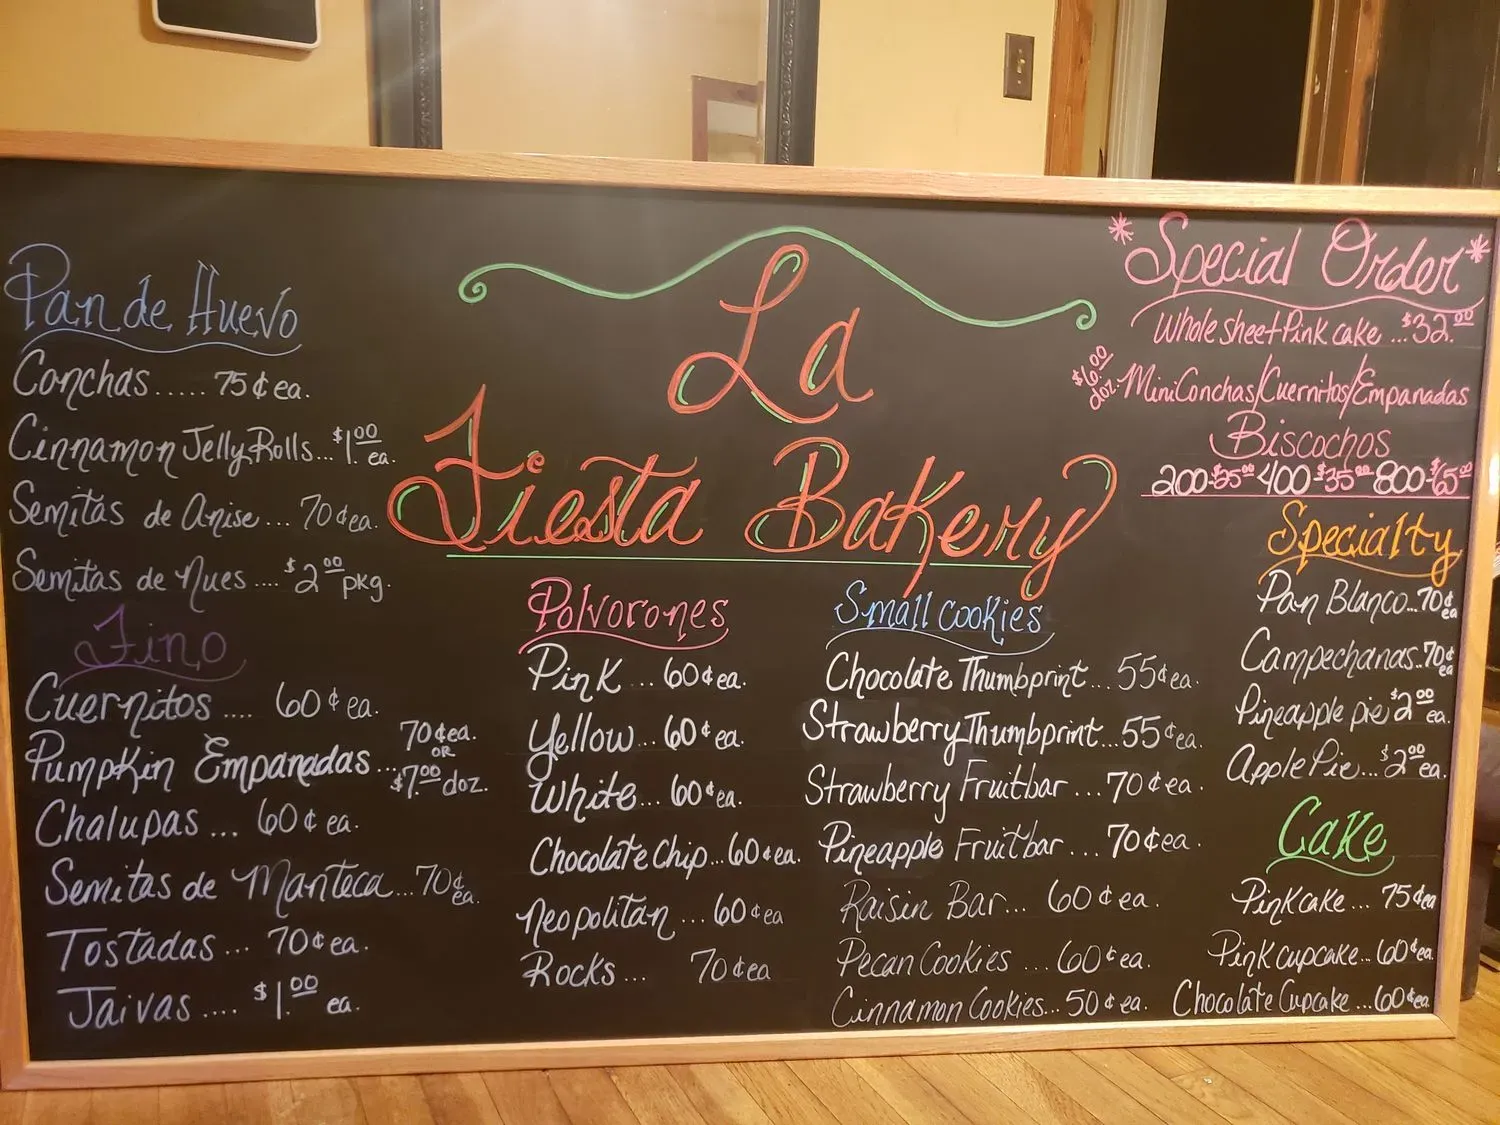 La
Fiesta Bakery
Pan de Huevo
Conchas...... 75¢ ea.
Cinnamon Jelly Rolls... $1.00 ea.
Semitas de Anise... 70¢ ea.
Semitas de Nues.... $2.00 pkg.
Fino
Cuernitos .... 60¢ ea.
Pumpkin Empanadas... 70¢ ea. OR $7.00 doz.
Chalupas ... 60¢ ea.
Semitas de Manteca...70¢ ea.
Tostadas ... 70¢ ea.
Jaivas .... $1.00 ea.
Polvorones
Pink ... 60¢ ea.
Yellow ... 60¢ ea.
White... 60¢ ea.
Chocolate Chip...60¢ ea.
Neopolitan ... 60¢ ea
Rocks ... 70¢ ea
Small cookies
Chocolate Thumbprint... 55¢ ea.
Strawberry Thumbprint...55¢ ea.
Strawberry Fruitbar ...70¢ ea.
Pineapple Fruitbar ... 70¢ ea.
Raisin Bar... 60¢ ea.
Pecan Cookies ... 60¢ ea.
Cinnamon Cookies... 50¢ ea.
*Special Order*
Whole sheet Pink cake ...$32.00
$6.00 doz. Mini Conchas/Cuernitos/Empanadas
Biscochos
200-$25.00 400-$35.00 800-$65.00
Specialty
Pan Blanco...70¢ ea
Campechanas..70¢ ea
Pineapple pie $2.00 ea.
Apple Pie... $2.00 ea.
Cake
Pink cake ... 75¢ ea
Pink cupcake... 60¢ ea.
Chocolate Cupcake ...60¢ ea.